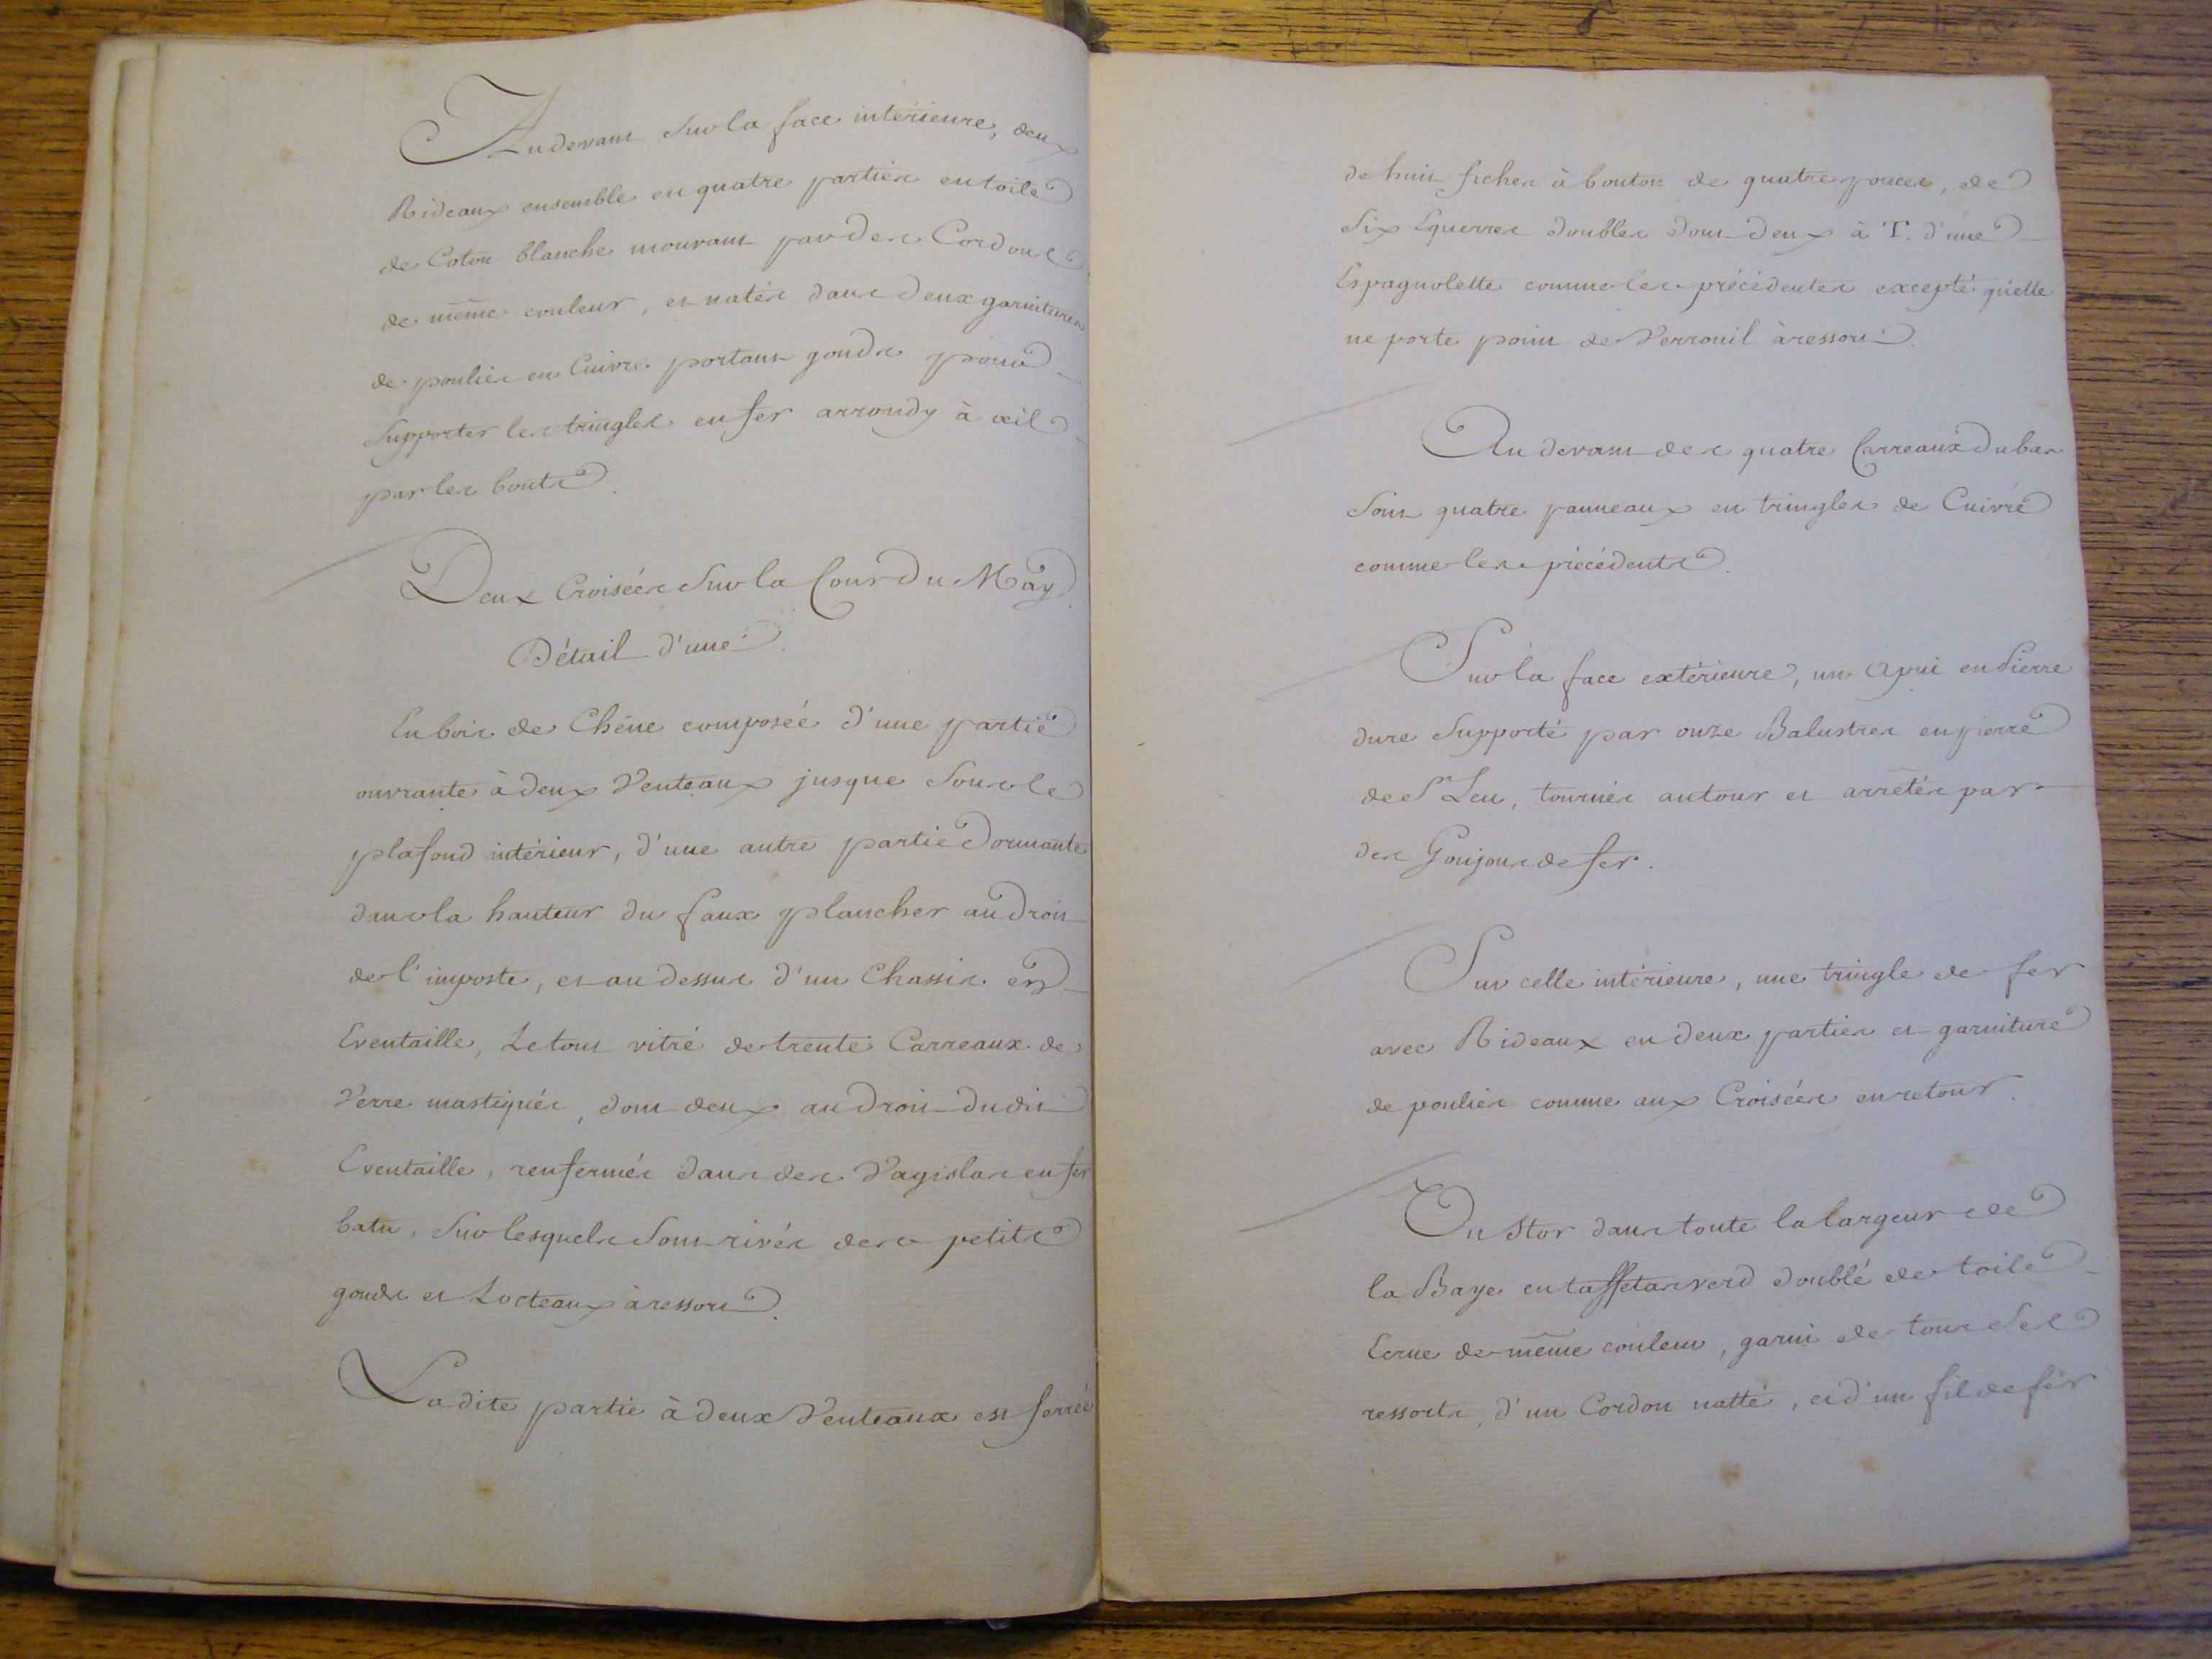 Au devant sur la face intérieure, deux
Rideaux ensemble en quatre parties en toile
de Coton blanche mouvant par des Cordons
de même couleur, et natés dans deux garnitures
de poulies en Cuivre portant gonds pour
Supporter les tringles en fer arrondy à œil
par les bouts.
Deux Croisées Sur la Cour du May.
Détail d'une.
En bois de Chêne composée d'une partie
ouvrante à deux Venteaux jusque Sous le
plafond intérieur, d'une autre partie Dormante
dans la hauteur du faux plancher au Droit
de l'imposte, et au dessus d'un Chassis en
Eventaille, Le tout vitré de trente Carreaux de
Verre mastiqués, dont deux au Droit dudit
Eventaille, renfermés dans des Vagislas en fer
batu, Sur lesquels Sont rivés des petits
gonds et Locteaux à ressort.
Ladite partie à deux Venteaux est ferrée
de huit fiches à bouton de quatre pouces, de
Six Equerres doubles dont deux à T. d'une
Espagnolette comme les précédentes excepté qu'elle
ne porte point de Verrouil à ressort.
Au devant des quatre Carreaux du bas
Sont quatre panneaux en tringles de Cuivre
comme les précédents.
Sur la face extérieure, un Apui en Pierre
dure Supporté par onze Balustres en pierre
de St Leu, tournés autour et arrêtés par
des Goujons de fer.
Sur celle intérieure, une tringle de fer
avec Rideaux en deux parties et garniture
de poulies comme aux Croisées en retour.
Un Stor dans toute la largeur de
la Baye en taffetas verd doublé de toile
Ecrue de même couleur, garni de tous Ses
ressorts, d'un Cordon natté, et d'un fil de fer